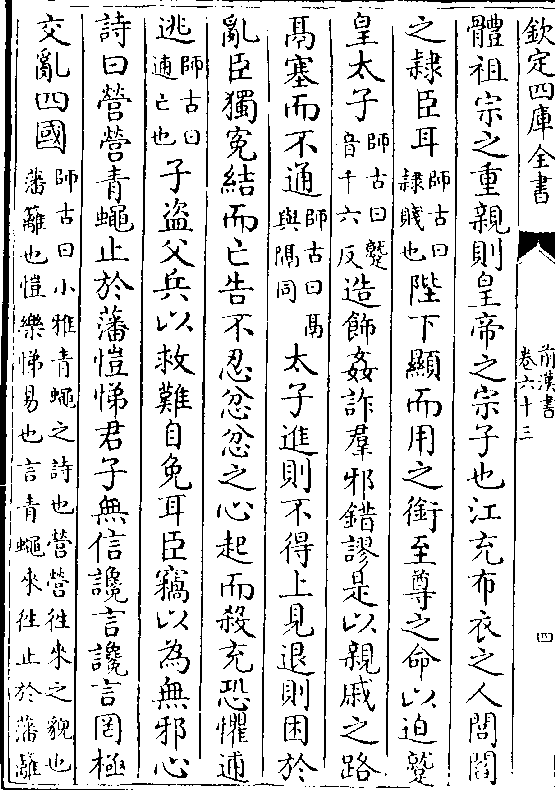 欽定四庫全書
前漢書
卷六十三
四
體祖宗之重親則皇帝之宗子也江充布衣之人閭閻
之隸臣耳師古曰隸賤也陛下顯而用之銜至尊之命以迫蹵
皇太子師古曰蹵音千六反造飾姦詐羣邪錯謬是以親戚之路
鬲塞而不通師古曰鬲與隔同太子進則不得上見退則困於
亂臣獨寃結而亡告不忍忿忿之心起而殺充恐懼逋
逃師古曰逋亡也子盜父兵以救難自免耳臣竊以為無邪心
詩曰營營青蠅止於藩愷悌君子無信讒言讒言罔極
交亂四國師古曰小雅青蠅之詩也營營徃來之貌也藩籬也愷樂悌易也言青蠅來徃止於藩籬